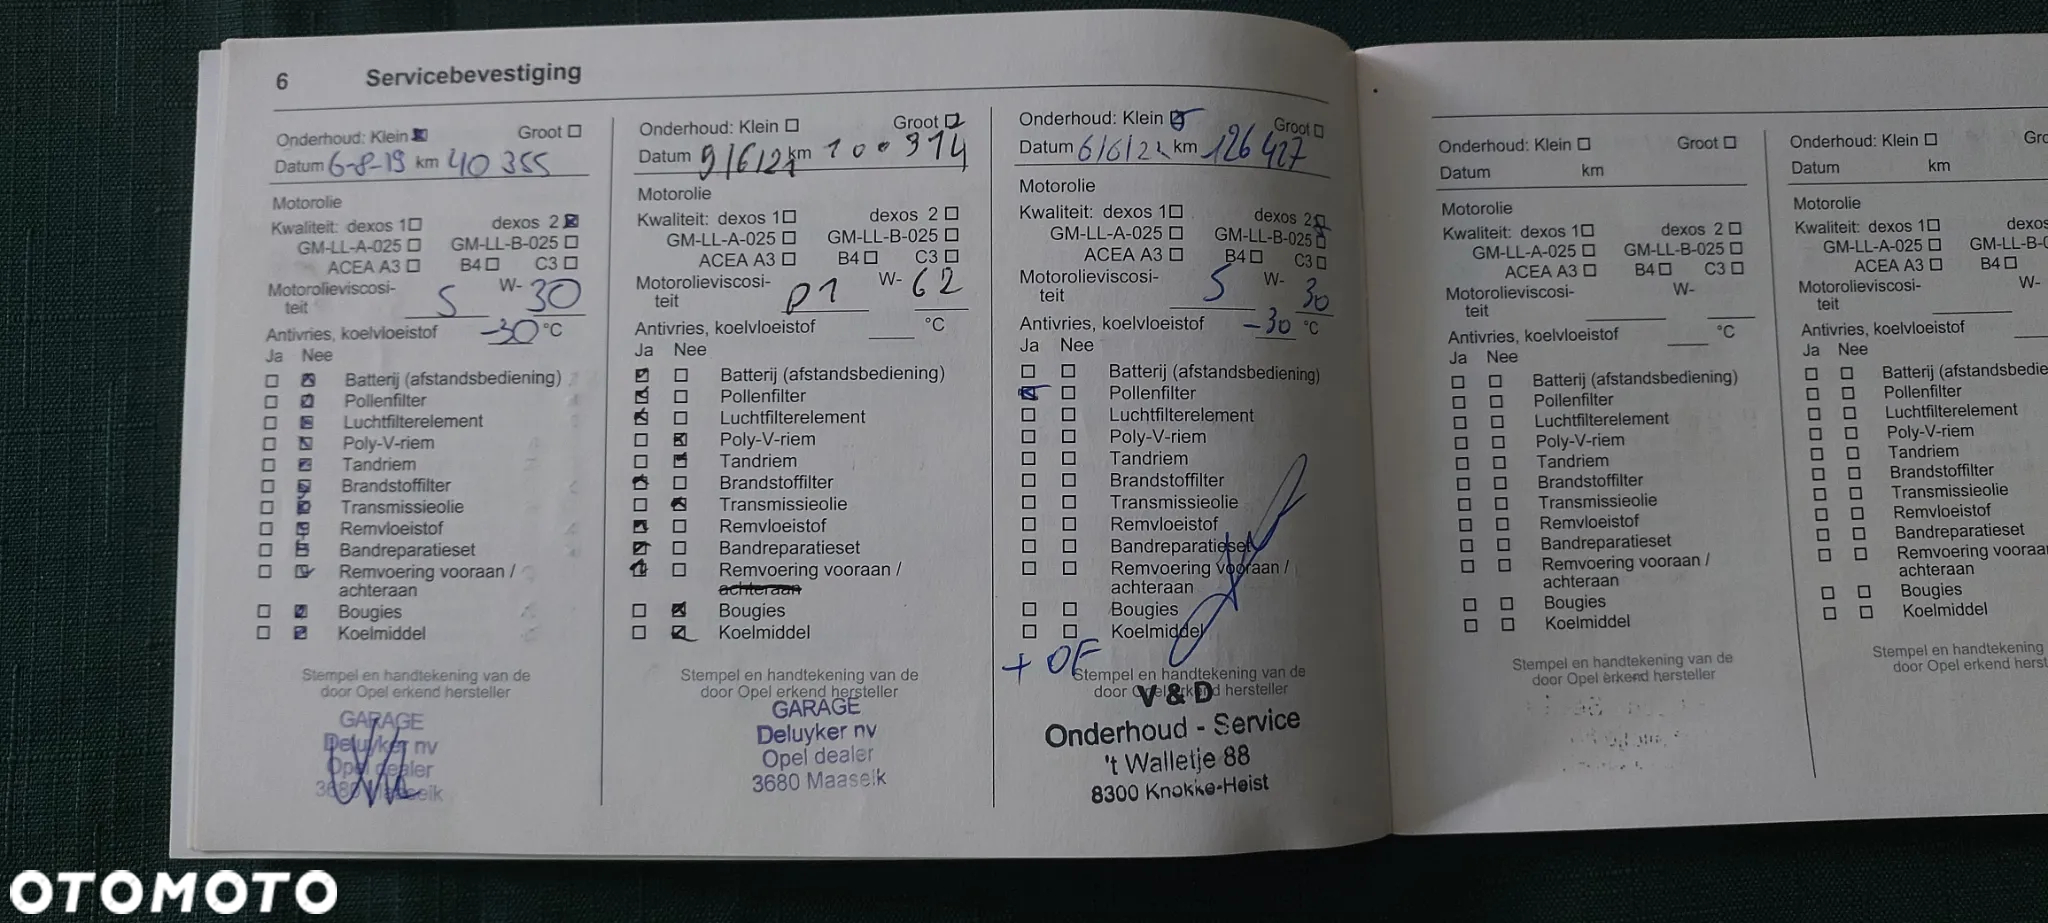 6 Servicebevestiging
Onderhoud: Klein Groot
Datum 6-8-19 km 40 355
Motorolie
Kwaliteit: dexos 1 dexos 2
GM-LL-A-025 GM-LL-B-025
ACEA A3 B4 C3
Motorolieviscosi- 5 W- 30
teit
Antivries, koelvloeistof -30 °C
Ja Nee
Batterij (afstandsbediening)
Pollenfilter
Luchtfilterelement
Poly-V-riem
Tandriem
Brandstoffilter
Transmissieolie
Remvloeistof
Bandreparatieset
Remvoering vooraan /
achteraan
Bougies
Koelmiddel
Stempel en handtekening van de
door Opel erkend hersteller
GARAGE
Deluyker nv
Opel dealer
3680 Maaseik
Onderhoud: Klein Groot
Datum 9/6/21 km 100 914
Motorolie
Kwaliteit: dexos 1 dexos 2
GM-LL-A-025 GM-LL-B-025
ACEA A3 B4 C3
Motorolieviscosi- W- 62
teit
Antivries, koelvloeistof °C
Ja Nee
Batterij (afstandsbediening)
Pollenfilter
Luchtfilterelement
Poly-V-riem
Tandriem
Brandstoffilter
Transmissieolie
Remvloeistof
Bandreparatieset
Remvoering vooraan /
achteraan
Bougies
Koelmiddel
Stempel en handtekening van de
door Opel erkend hersteller
GARAGE
Deluyker nv
Opel dealer
3680 Maaseik
Onderhoud: Klein Groot
Datum 6/6/22 km 126 427
Motorolie
Kwaliteit: dexos 1 dexos 2
GM-LL-A-025 GM-LL-B-025
ACEA A3 B4 C3
Motorolieviscosi- 5 W- 30
teit
Antivries, koelvloeistof -30 °C
Ja Nee
Batterij (afstandsbediening)
Pollenfilter
Luchtfilterelement
Poly-V-riem
Tandriem
Brandstoffilter
Transmissieolie
Remvloeistof
Bandreparatieset
Remvoering vooraan /
achteraan
Bougies
Koelmiddel
+ OF
Stempel en handtekening van de
door Opel erkend hersteller
V & D
Onderhoud - Service
't Walletje 88
8300 Knokke-Heist
Onderhoud: Klein Groot
Datum km
Motorolie
Kwaliteit: dexos 1 dexos 2
GM-LL-A-025 GM-LL-B-025
ACEA A3 B4 C3
Motorolieviscosi- W-
teit
Antivries, koelvloeistof °C
Ja Nee
Batterij (afstandsbediening)
Pollenfilter
Luchtfilterelement
Poly-V-riem
Tandriem
Brandstoffilter
Transmissieolie
Remvloeistof
Bandreparatieset
Remvoering vooraan /
achteraan
Bougies
Koelmiddel
Stempel en handtekening van de
door Opel erkend hersteller
Onderhoud: Klein Gro
Datum km
Motorolie
Kwaliteit: dexos 1 dexos
GM-LL-A-025 GM-LL-B-0
ACEA A3 B4
Motorolieviscosi- W-
teit
Antivries, koelvloeistof
Ja Nee
Batterij (afstandsbedie
Pollenfilter
Luchtfilterelement
Poly-V-riem
Tandriem
Brandstoffilter
Transmissieolie
Remvloeistof
Bandreparatieset
Remvoering vooraa
achteraan
Bougies
Koelmiddel
Stempel en handtekening
door Opel erkend herst
OTOMOTO